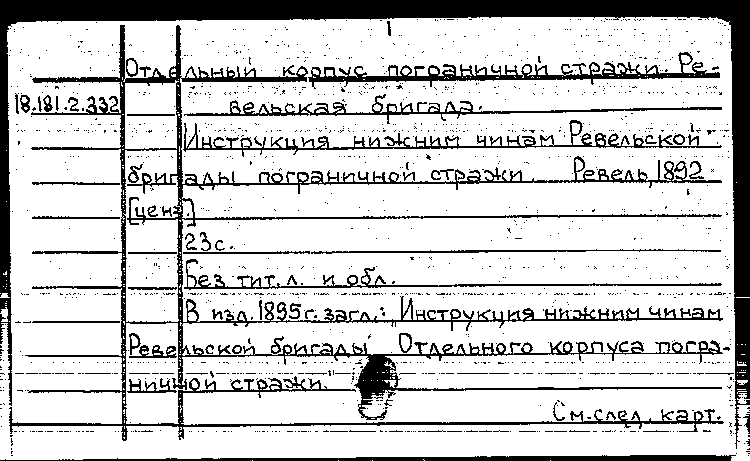 Отдельный корпус пограничной стражи. Ре-
18.181.2.332 вельская бригада.
Инструкция нижним чинам Ревельской
бригады пограничной стражи. Ревель, 1892
[ценз]
23с.
Без тит. л. и обл.
В изд. 1895г. загл.: "Инструкция нижним чинам
Ревельской бригады Отдельного корпуса погра-
ничной стражи."
См. след. карт.